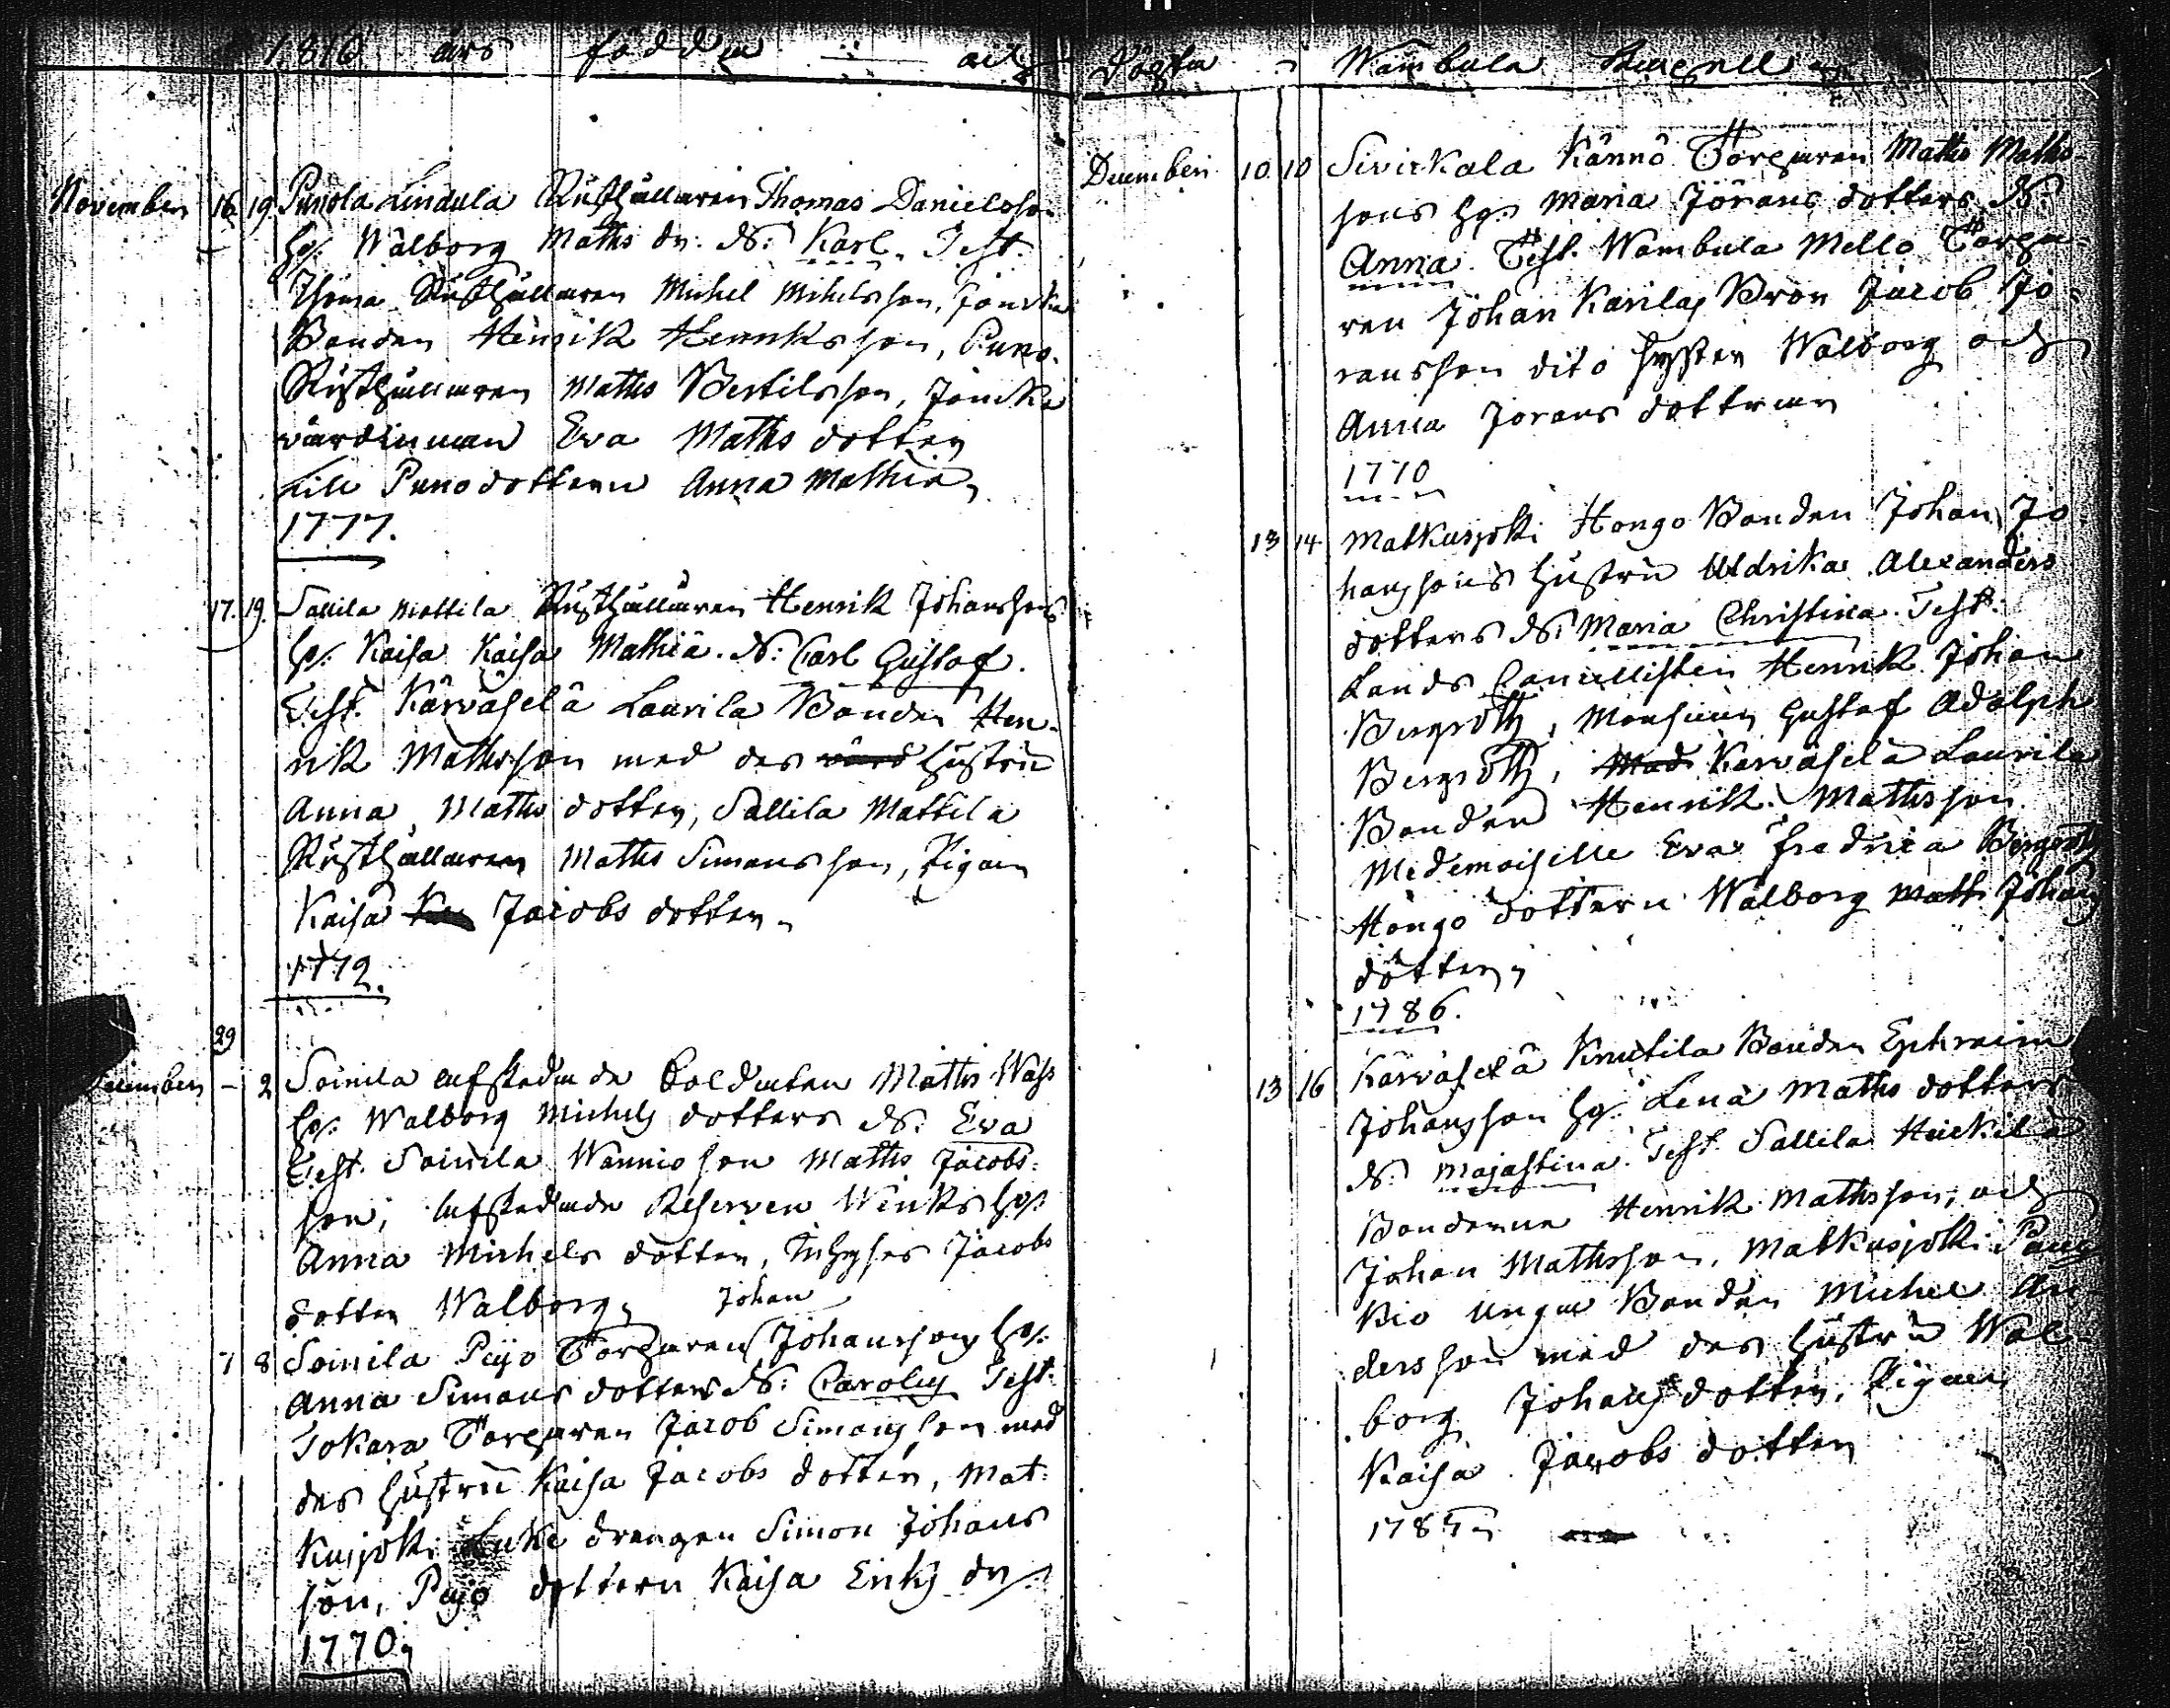 1816 års födde och
November 16 19 Punola Lindula Rusthållaren Thomas Danielsson
hs: Walborg Maths dr: S: Karl. Test.
Rusthållaren Michel Mihelsson, Jancka
Bonden Henrik Henriksson, Puno
Rusthållaren Maths Bertilsson, Jancka
värdinnan Eva Maths dotter
Lill Punodottern Anna Mathiä,
1777.
17. 19. Sallila Mattila Rusthållaren Henrik Johanssons
hs: Kaisa Kaisa Mathiä. S: Carl Gustaf.
Test. Kärväselä Laurila Bonden Hen-
rik Mathsson med des hustru
Anna Maths dotter, Sallila Mattila
Rusthållaren Maths Simonsson, Pigan
Kaisa Jacobs dotter
1772.
29
December – 2 Soinila afskedade Soldaten Maths Wass
hs: Walborg Michels dotters S: Eva
Test. Soinila Wännio son Maths Jacobs:
son, afskedade Reserven Winks hs:
Anna Michels dotter, Inhyses Jacobs
dotter Walborg,
Johan
7 8 Soinila Pajo Torparen Johanssons hs:
Anna Simons dotters S: Carolus Test:
Tokara Torparen Jacob Simonsson med
des hustru Kaisa Jacobs dotter, Mat:
kusjoki Luke drengen Simon Johans
son, Pajo dottern Kaisa Eriks dr
1770,
Döpta i Wambula Capell
December 10 10 Sivikkala Kännö Torparen Maths Maths-
sons hs: Maria Jörans dotters S:
Anna. Test. Wambula Mello Torpa-
ren Johan Karilas Bron Jacob Jö-
ransson dito syster Walborg och
Anna Jörans döttrar
1770
13 14 Matkusjoki Hongo Bonden Johan Jo
hanssons hustru Uldrika Alexanders
dotters S: Maria Christina. Test:
Lands Cancellisten Henrik Johan
Bergroth, Monsieur Gustaf Adolph
Bergroth, Kärväselä Laurila
Bonden Henrik Mathsson
Mademoiselle Eva Fredrica Bergroth
Hongo dottern Walborg Johans
dotter,
1786.
13 16 Kärväselä Knutila Bonden Ephraim
Johansson hs: Lena Maths dotters
S: Majastina. Test. Sallila Heickilä
Bönderne Henrik Mathsson, och
Johan Mathsson, Matkusjoki Pang
kio unga Bonden Michel An
dersson med des hustru Wal
borg Johans dotter, Pigan
Kaisa Jacobs dotter